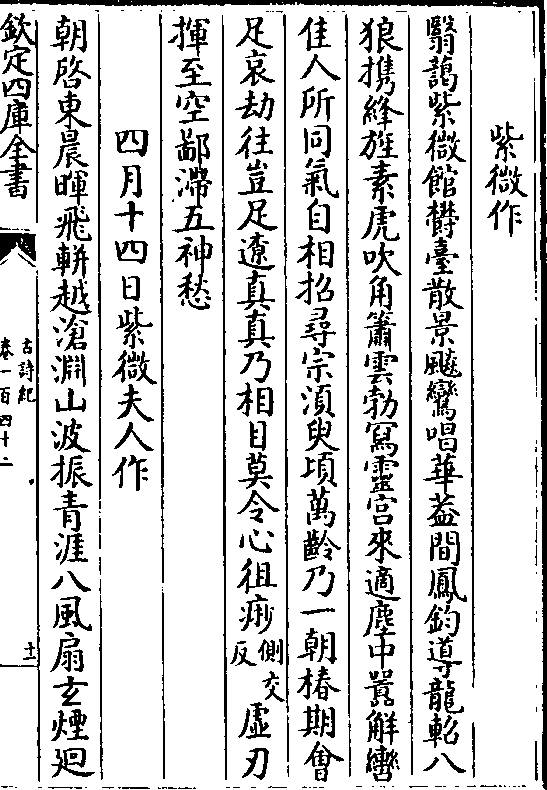 紫微作
翳藹紫微館欝臺散景飈鸞唱華葢間鳳鈞導龍軺八
狼携絳旌素虎吹角簫雲勃寫靈宫來適塵中囂解轡
佳人所同氣自相招尋宗湏臾項萬齡乃一朝椿期會
足哀劫往豈足遼真真乃相目莫令心徂痧側交反虚刃
揮至空鄙滯五神愁
四月十四日紫微夫人作
朝啓東晨暉飛軿越滄淵山波振青涯八風扇玄煙廻
欽定四庫全書
古詩紀
卷一百四十二
十一